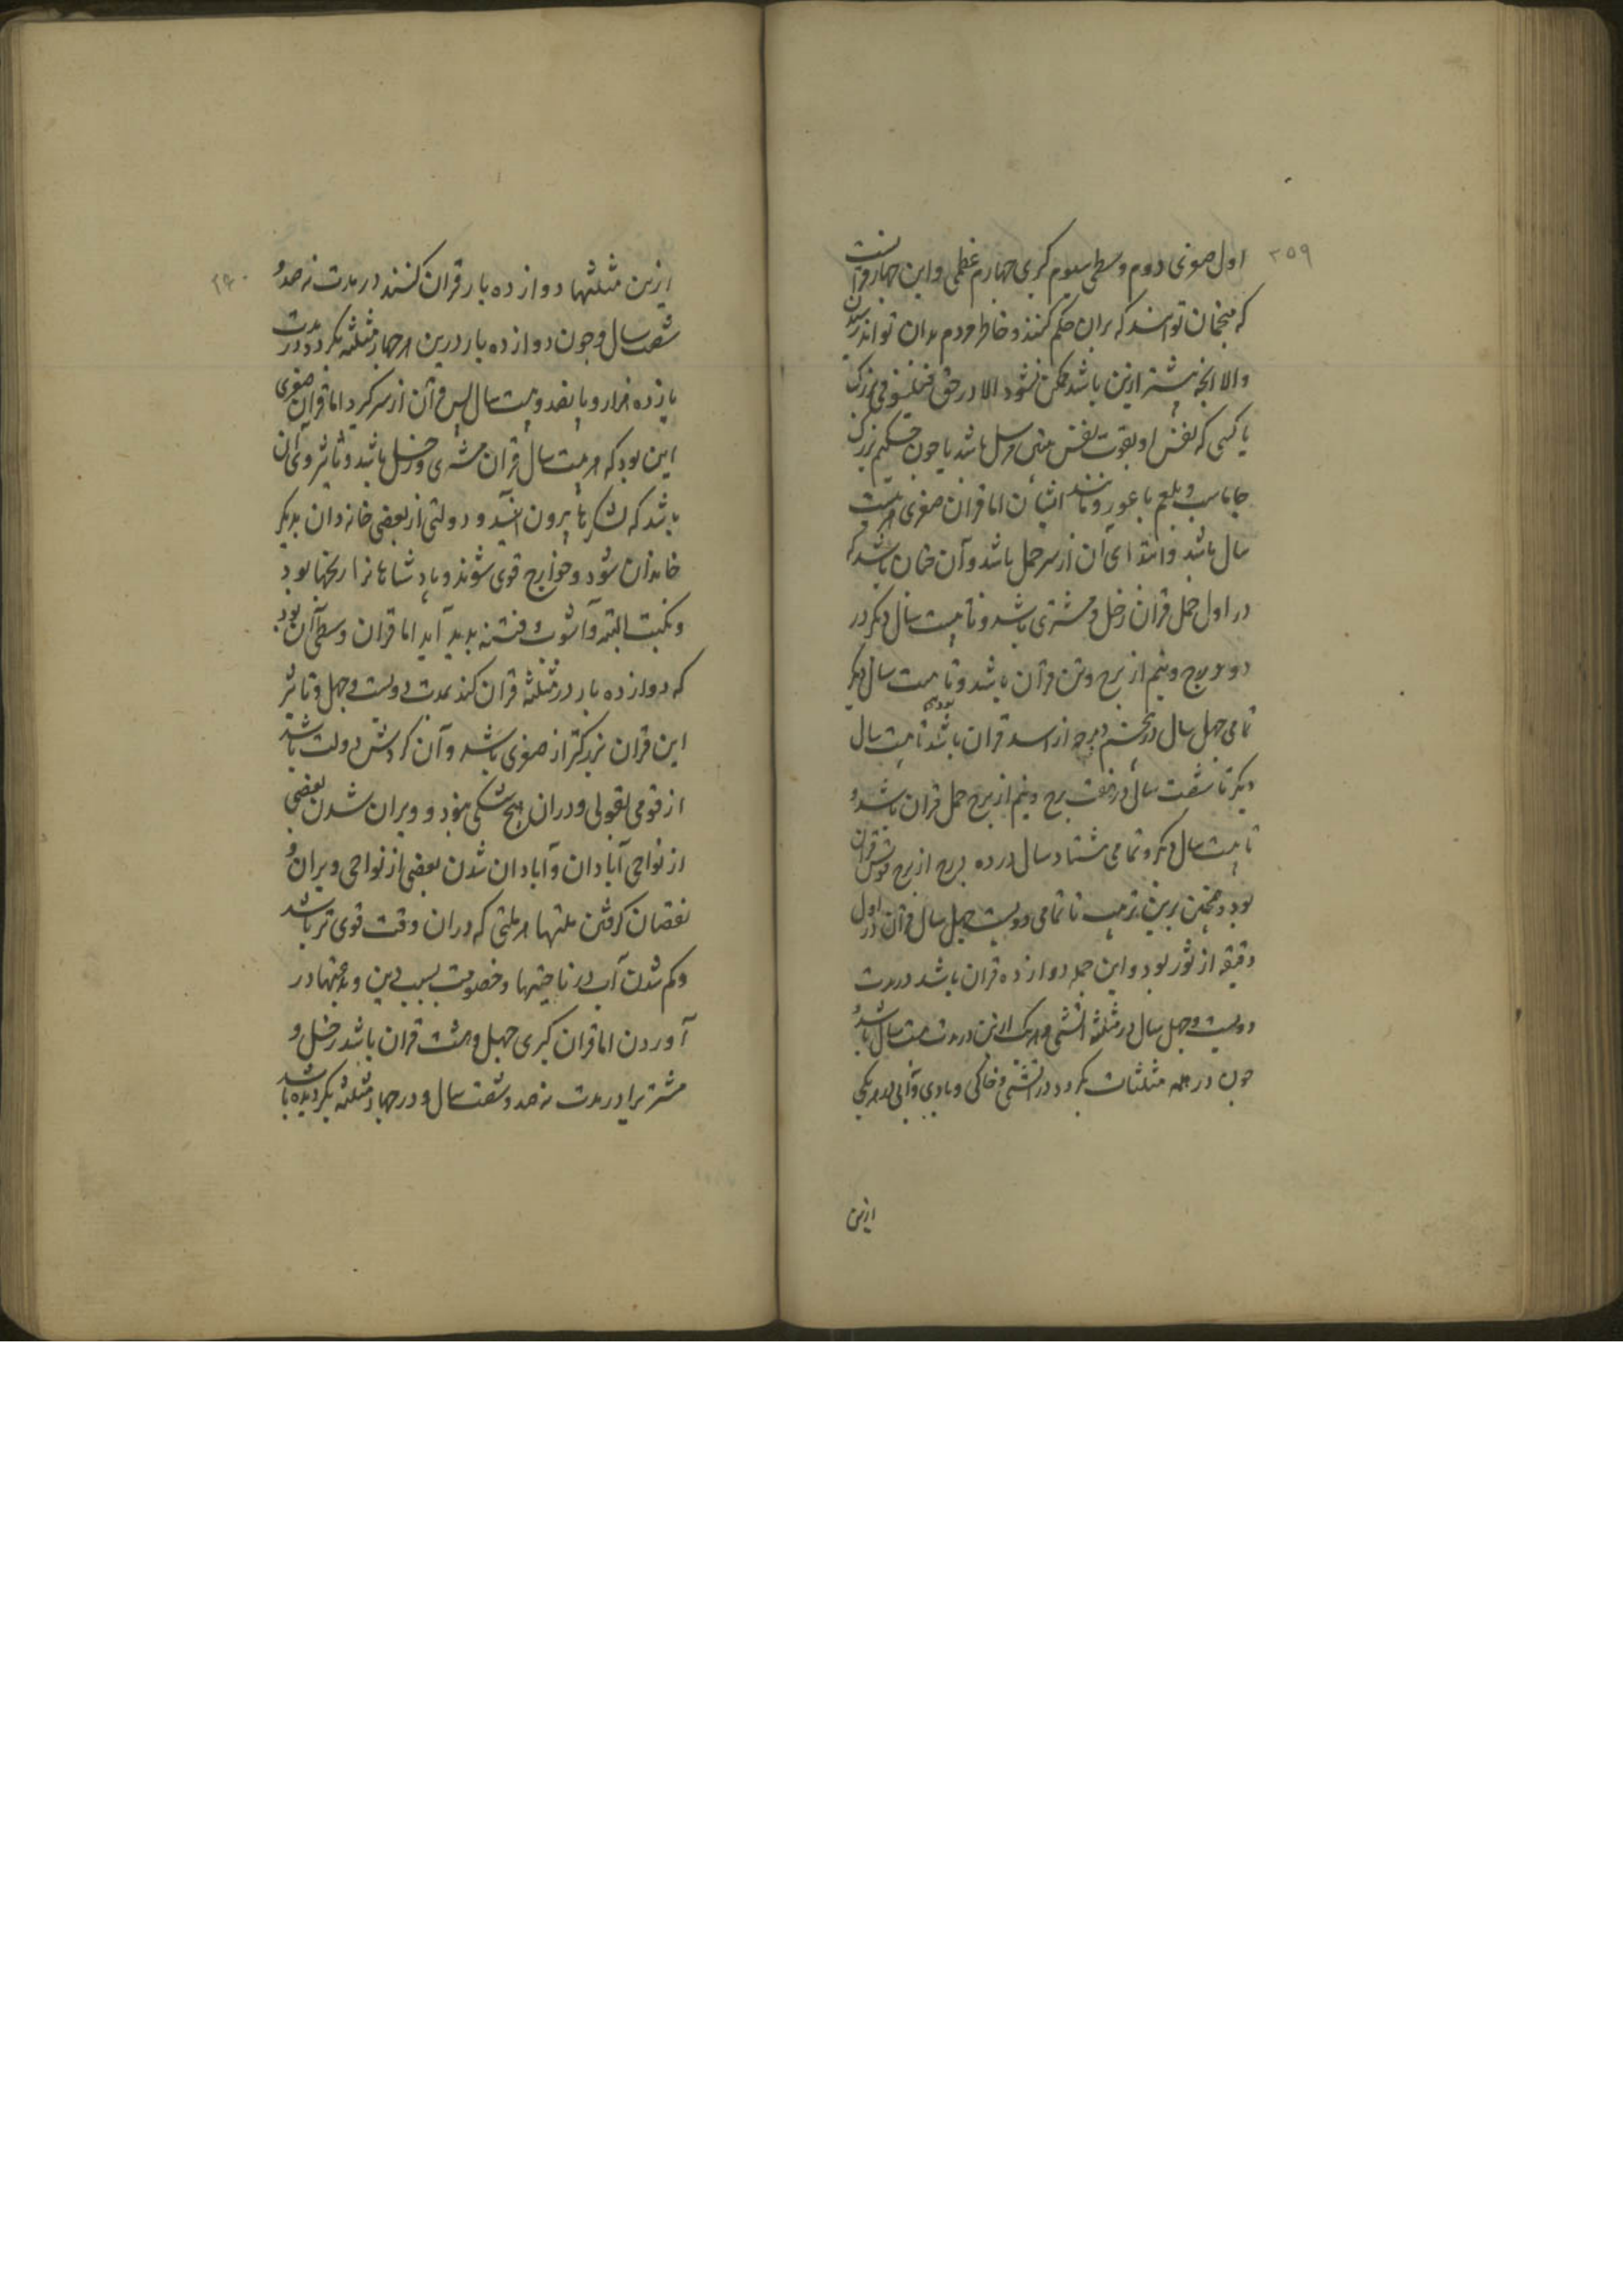 ۳۵۹
اول صغری دوم وسطی سیوم کبری چهارم عظمی و این چهار قرانست
که منجمان توانند که بران حکم کنند و خاطر مردم بدان تواند رسیدن
والا انچه بیشتر ازین باشد ممکن نشود الا در حق فیلسوفی بزرک
یا کسی که نفس او بقوت نفس نبی مرسل باشد یا چون حکیم بزرک
جاماسب و بلعم باعور و مانند ایشان اما قران صغری هر بیست
سال باشد و ابتدای آن از سر حمل باشد و آن چنان باشد که
در اول حمل قران زحل و مشتری باشد و تا بیست سال دیکر در
دو برج و نیم از برج قوس قران باشد و تا بیست سال دیکر
تمامی چهل سال در پنجم درجه از اسد قران باشد تا بیست سال
دیکر تا شصت سال در هفت درج و نیم از برج حمل قران باشد و
تا بیست سال دیکر و تمامی هشتاد سال در ده درج از برج قوس قران
بود و همچنین برین ترتیب تا تمامی دویست چهل سال قران در اول
دقیقه از ثور بود و این جمله دوازده قران باشد در مدت
دویست و چهل سال در مثلثه آتشی و هر یک ازین در مدت بیست سال باشد و
چون در همه مثلثات بکردد در آتشی و خاکی و بادی و آبی در هر یکی
ازین
۳۶۰
ازین مثلثها دوازده بار قران کنند در مدت نهصد و
شصت سال و چون دوازده بار درین هر چهار مثلثه بکردد در مدت
یازده هزار و پانصد و بیست سال پس قران از سر کیرد اما قران صغری
این بود که هر بیست سال قران مشتری و زحل باشد و تاثیر وی آن
باشد که لشکرها بیرون آیند و دولتی از بعضی خانه دان بدیکر
خاندان شود و خوارج قوی شوند و پادشاهانرا رنجها بود
و نکبت البته و آشوب و فتنه پدید آید اما قران وسطی آن بود
که دوازده بار در مثلثه قران کند بمدت دویست و چهل و تاثیر
این قران بزرکتر از صغری باشد و آن کردش دولت باشد
از قومی بقومی و دران هیچ شکی نبود و ویران شدن بعضی
از نواحی آبادان و آبادان شدن بعضی از نواحی ویران و
نقصان کرفتن ملتها هر ملتی که دران وقت قوی تر باشد
و کم شدن آب در ناحیتها و خصومت بسبب دین و مذهبها در
آوردن اما قران کبری چهل و هشت قران باشد زحل و
مشتریرا در مدت نهصد و شصت سال و در چهار مثلثه بکردیده باشد